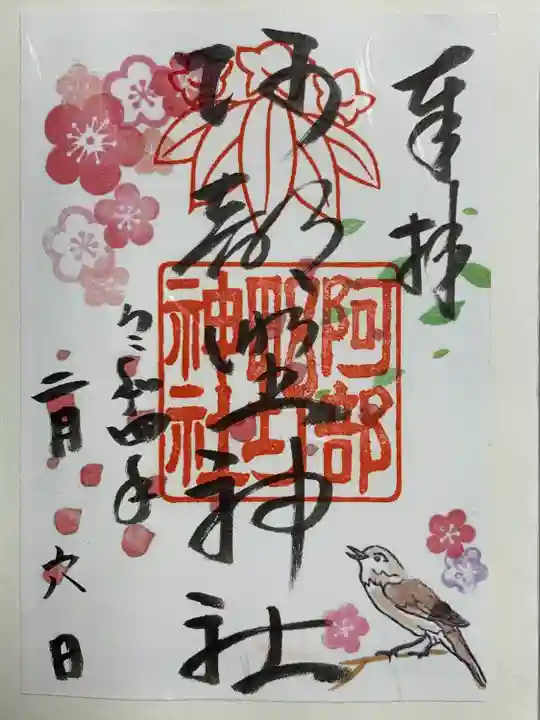 奉拝
阿部野神社
阿部
野
神社
令和四年
二月六日